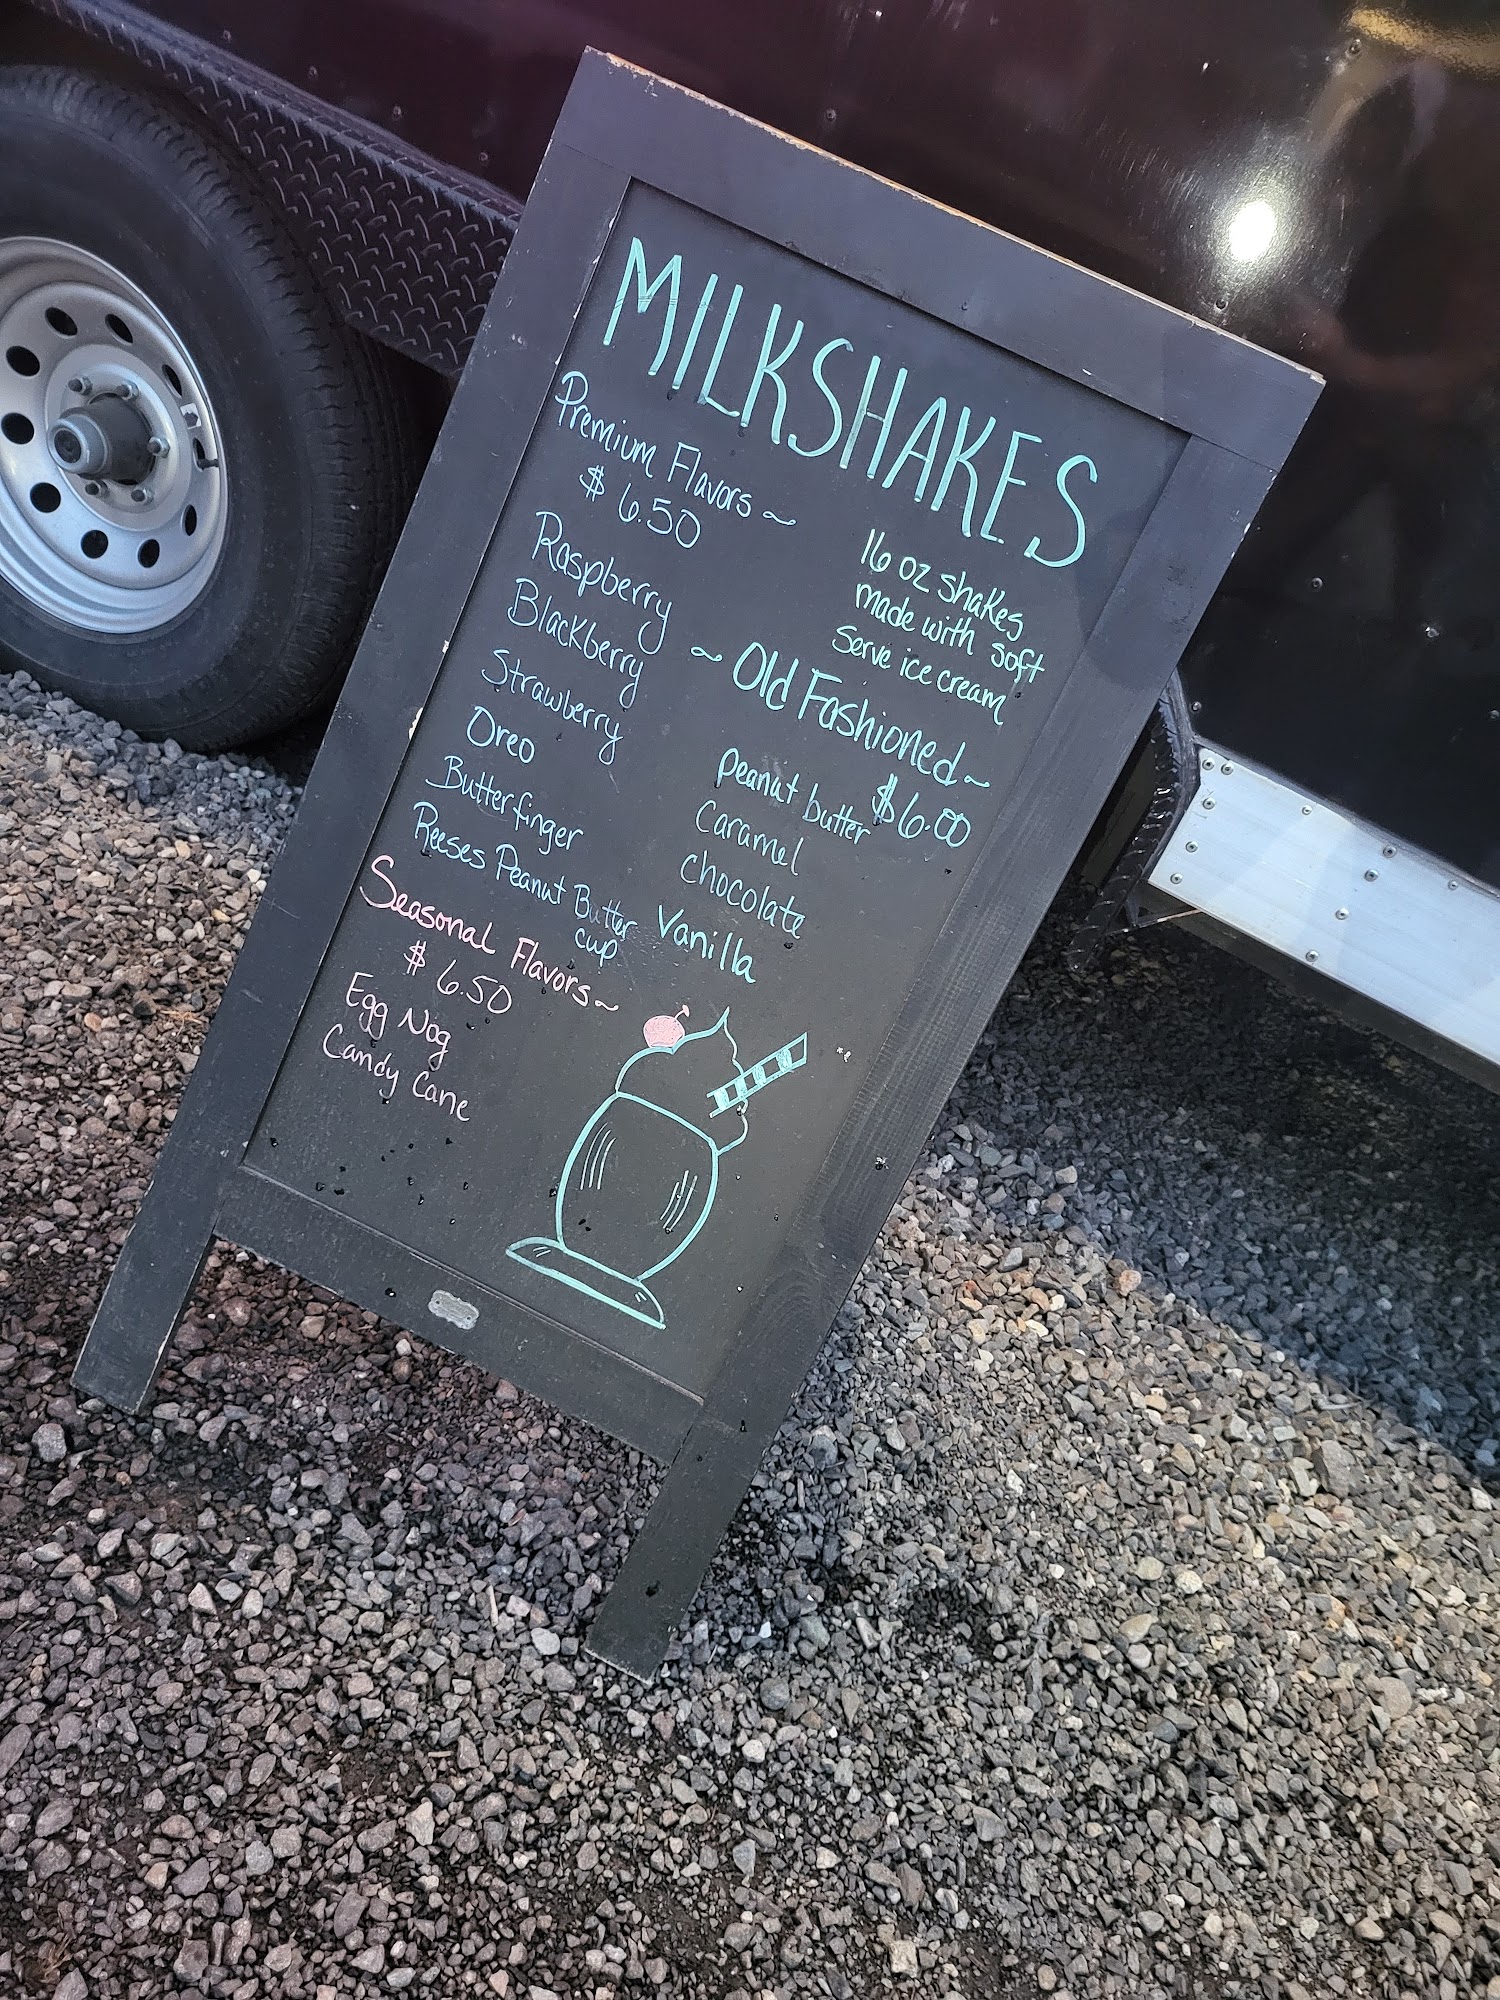 MILKSHAKES
Premium Flavors ~
$ 6.50
Raspberry
Blackberry
Strawberry
Oreo
Butterfinger
Reeses Peanut Butter
cup
Seasonal Flavors ~
$ 6.50
Egg Nog
Candy Cane
16 oz shakes
made with soft
Serve ice cream
~ Old Fashioned ~
$6.00
Peanut butter
Caramel
Chocolate
Vanilla